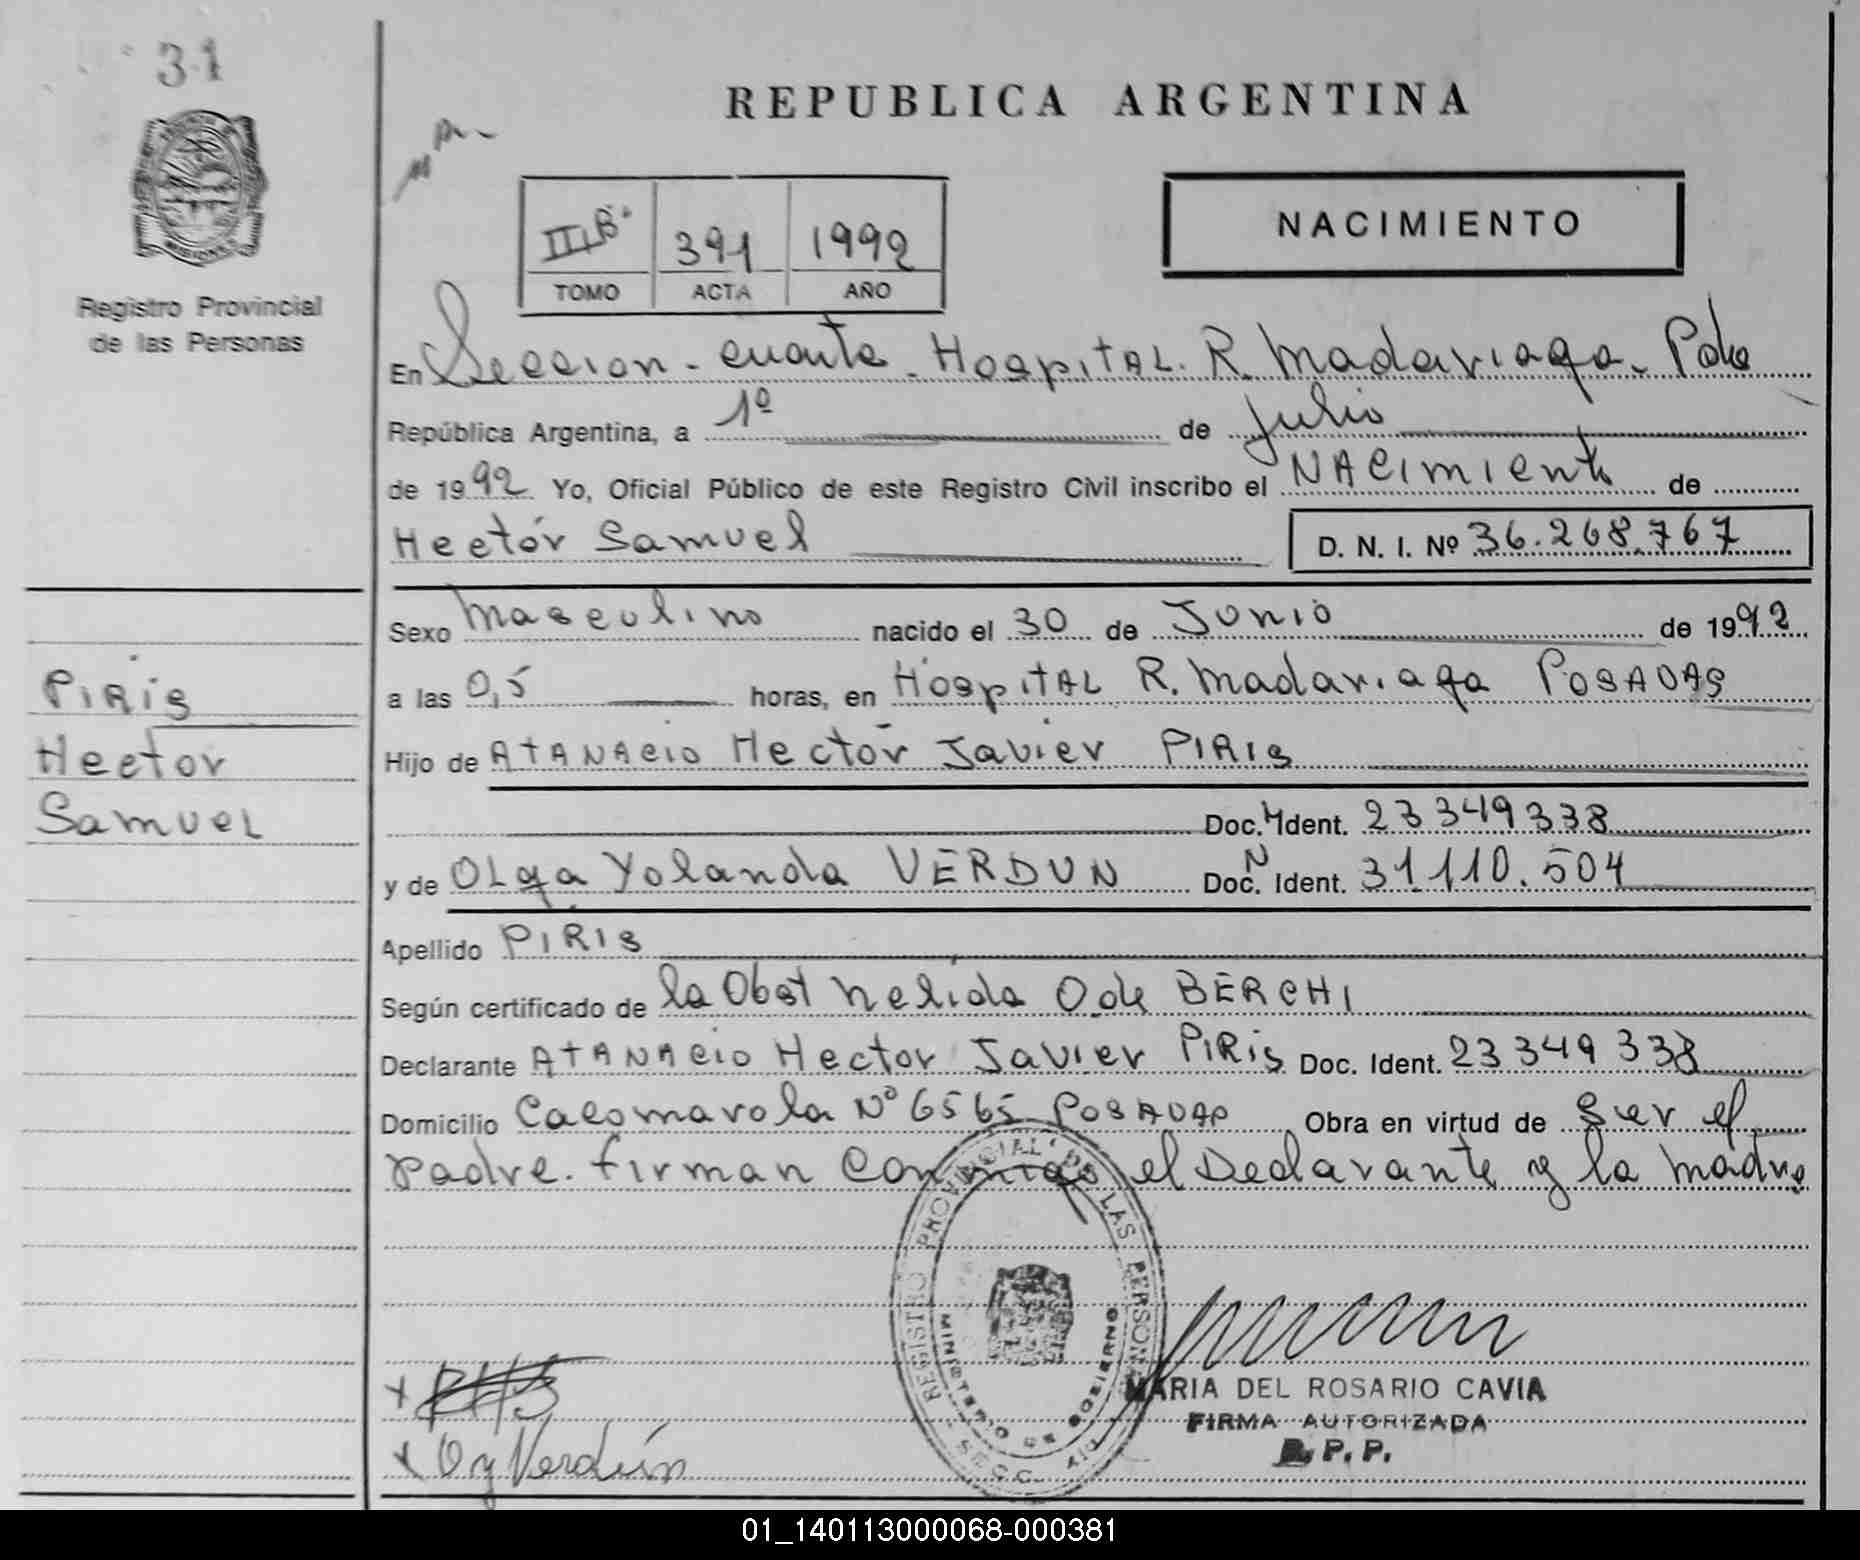 31
REPUBLICA ARGENTINA
Registro Provincial
de las Personas
III B° 391 1992
TOMO ACTA AÑO
NACIMIENTO
En Seccion - cuarta - Hospital R. Madariaga - Pdas
República Argentina, a 1º de Julio
de 1992 Yo, Oficial Público de este Registro Civil inscribo el NAcimiento de
Hectór Samuel D. N. I. Nº 36.268.767
Sexo Masculino nacido el 30 de Junio de 1992
a las 0,5 horas, en Hospital R. Madariaga Posadas
Hijo de Atanacio Hectór Javier PIRIS
Doc. N Ident. 23349338
y de Olga Yolanda VERDUN Doc. N Ident. 31.110.504
Apellido PIRIS
Según certificado de la Obst Nelida O. de BERCHI
Declarante Atanacio Hector Javier PIRIS Doc. Ident. 23349338
Domicilio Cacomarola Nº 6565 Posadas Obra en virtud de Ser el
padre. firman Conmigo el Declarante y la madre
PIRIS
Hector
Samuel
REGISTRO PROVINCIAL DE LAS PERSONAS
MINISTERIO DE GOBIERNO
x
x Oy Verdún
MARIA DEL ROSARIO CAVIA
FIRMA AUTORIZADA
R. P. P.
01_140113000068-000381